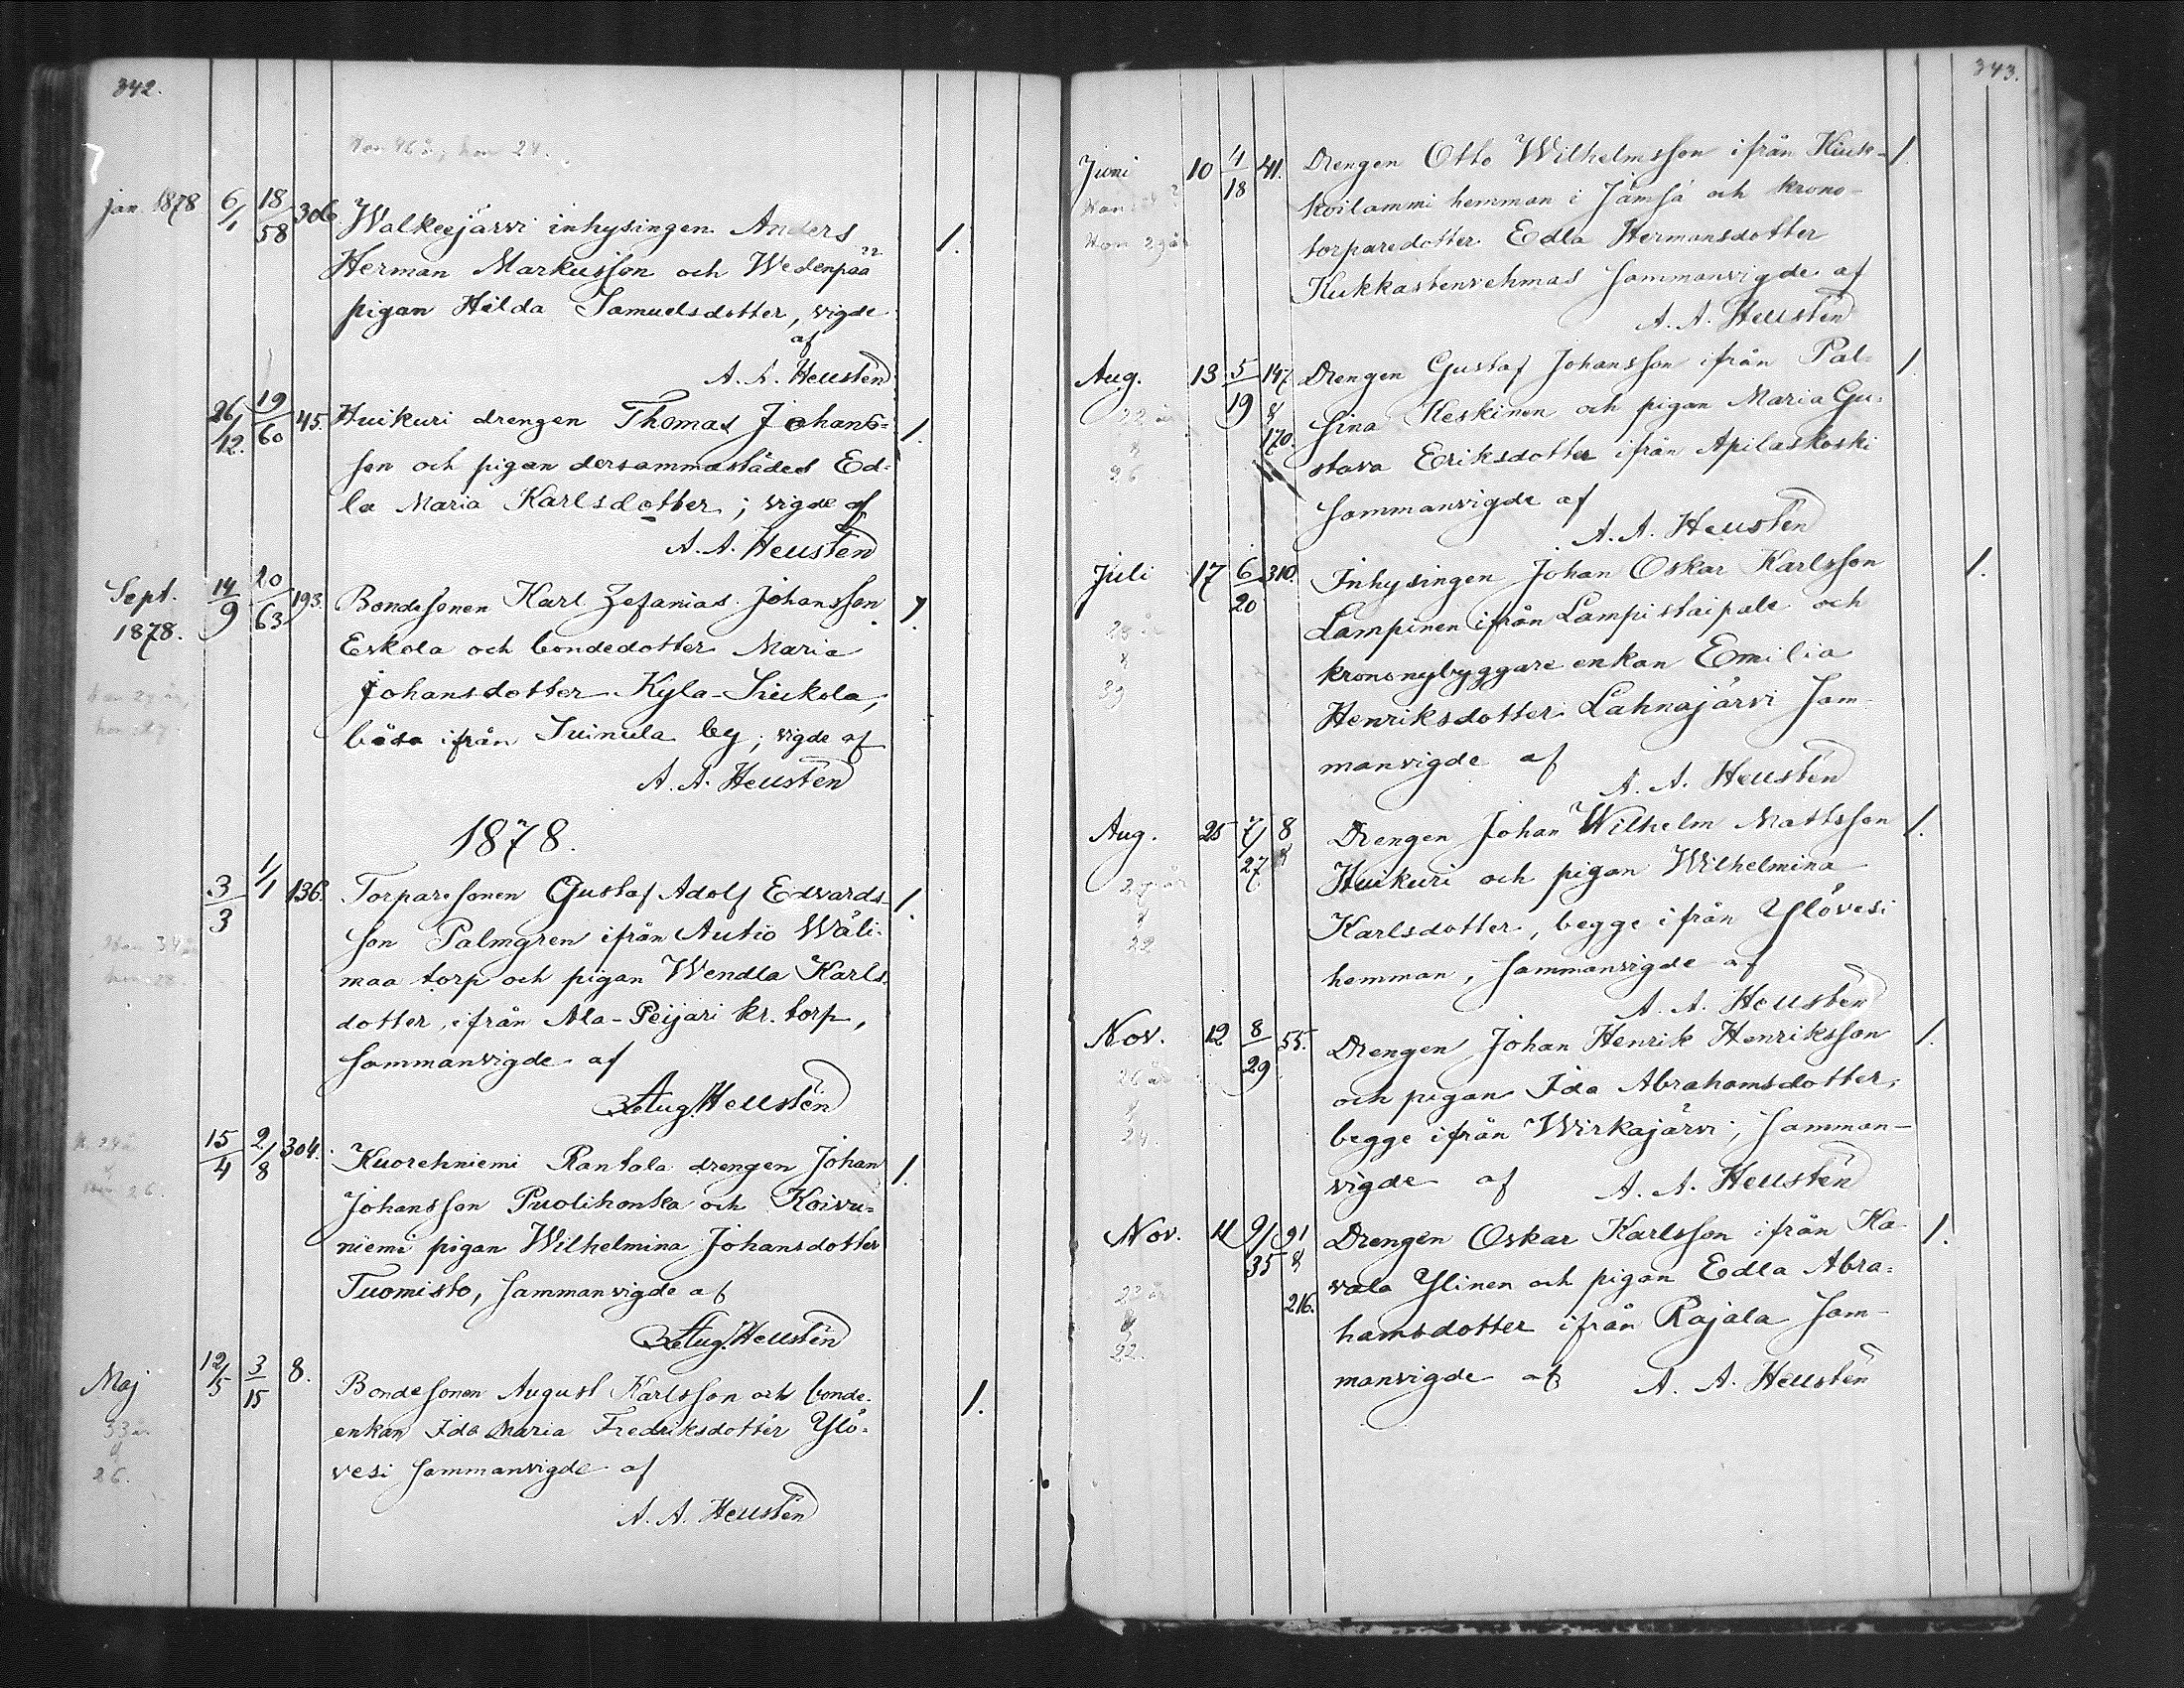 342.
Jan. 1878 6/1 18/58 306 Walkeejärvi inhysingen Anders 1.
Herman Markusson och Wedenpää
pigan Hilda Samuelsdotter, vigde
af
A. A. Heustén
26/12. 19/60 45. Huikuri drengen Thomas Johans= 1.
son och pigan dersammastädes Ed=
la Maria Karlsdotter; vigde af
A. A. Heustén
Sept. 1878. 14/9 20/63 193. Bondesonen Karl Zefanias Johansson 1.
Eskola och bondedotter Maria
Johansdotter Kylä-Siukola,
båda ifrån Suinula by; vigde af
A. A. Heustén
1878.
3/3 1/1 136. Torparesonen Gustaf Adolf Edvards- 1.
son Palmgren ifrån Autio Wäli-
maa torp och pigan Wendla Karls-
dotter, ifrån Ala-Peijari kr. torp,
sammanvigde af
Aug. Heustén
15/4 2/8 304. Kuorehniemi Rantala drengen Johan 1.
Johansson Puolihonka och Koivu=
niemi pigan Wilhelmina Johansdotter
Tuomisto, sammanvigde af
Aug. Heustén
Maj 12/5 3/15 8. Bondesonen August Karlsson och bonde- 1.
enkan Ida Maria Fredriksdotter Ylö=
vesi sammanvigde af
A. A. Heustén
343.
Juni 10 4/18 41. Drengen Otto Wilhelmsson ifrån Kuk- 1.
koilammi hemman i Jämsä och krono-
torparedotter Edla Hermansdotter
Kukkastenvehmas sammanvigde af
A. A. Heustén
Aug. 13 5/19 147 & 170. Drengen Gustaf Johansson ifrån Pal= 1
sina Keskinen och pigan Maria Gu=
stava Eriksdotter ifrån Apilaskoski
sammanvigde af
A. A. Heustén
Juli 17 6/20 310. Inhysingen Johan Oskar Karlsson 1.
Lampinen ifrån Lampistaipale och
krononybyggare enkan Emilia
Henriksdotter Lahnajärvi sam-
manvigde af
A. A. Heustén
Aug. 25 7/27 8 & Drengen Johan Wilhelm Mattsson 1.
Huikuri och pigan Wilhelmina
Karlsdotter, begge ifrån Ylövesi
hemman, sammanvigde af
A. A. Heustén
Nov. 12 8/29 55. Drengen Johan Henrik Henriksson 1.
och pigan Ida Abrahamsdotter,
begge ifrån Wirkajärvi, samman-
vigde af A. A. Heustén
Nov. 11 9/35 91 & 216. Drengen Oskar Karlsson ifrån Ha- 1.
vala Ylinen och pigan Edla Abra=
hamsdotter ifrån Rajala sam-
manvigde af A. A. Heustén